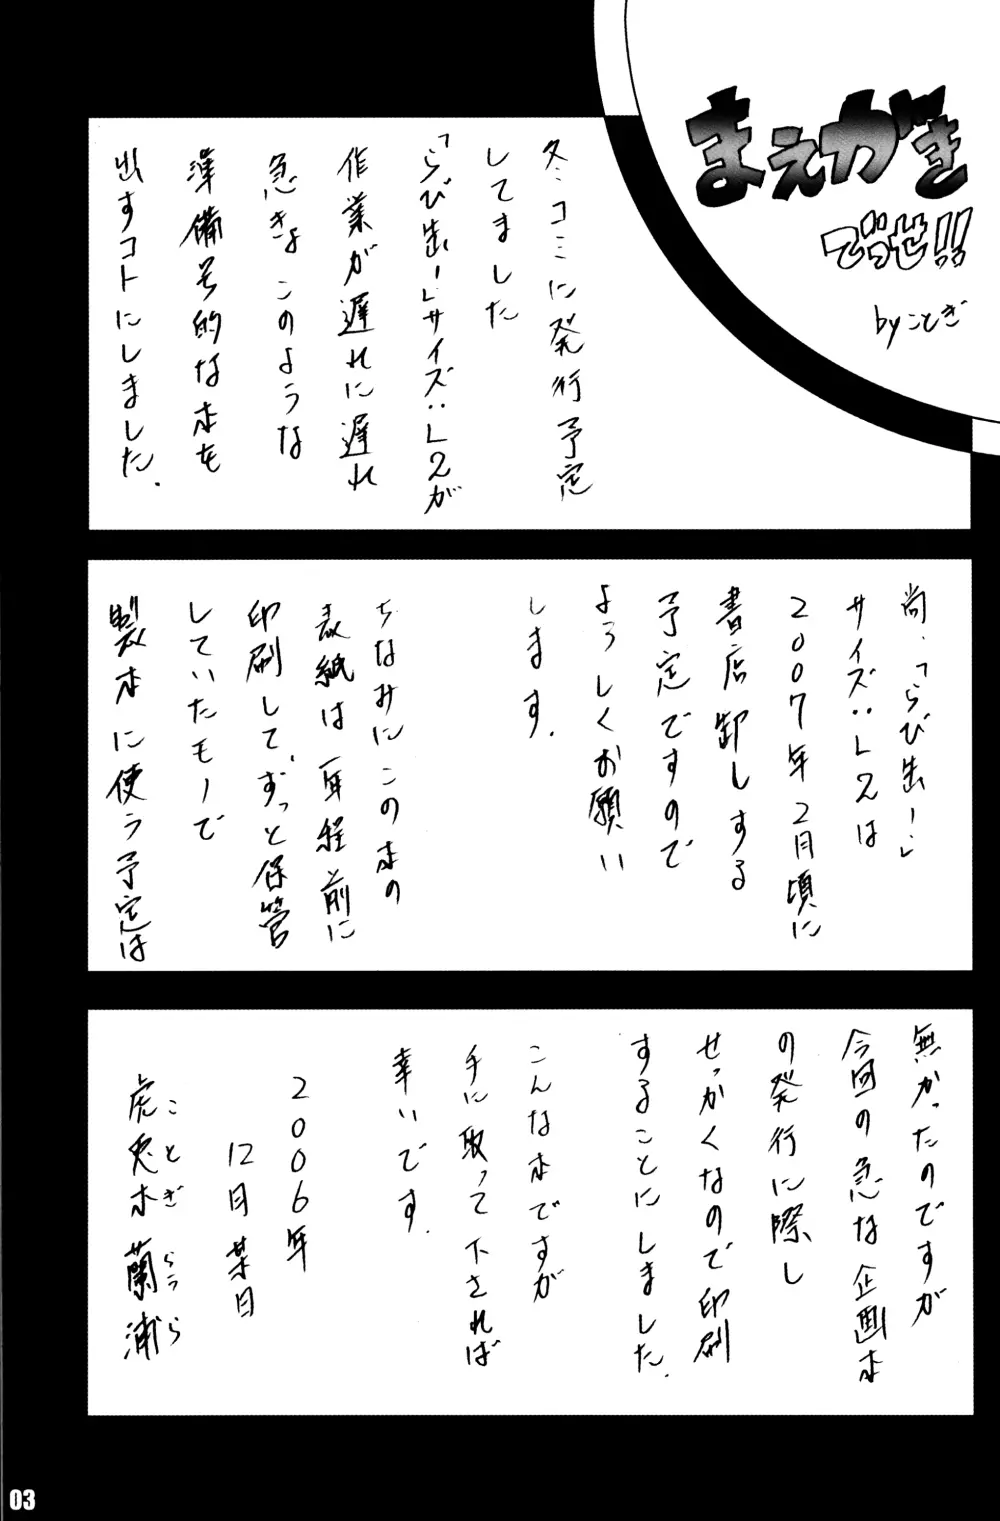 まえがき
でっせ!!
byことぎ
冬コミに発行予定
してました
「らび出し」サイズ:L2が
作業が遅れに遅れ
急きょこのような
準備号的な本を
出すコトにしました.
尚、「らび出し」
サイズ:L2は
2007年2月頃に
書店卸しする
予定ですので
よろしくお願い
します.
ちなみにこの本の
表紙は一年程前に
印刷して、ずっと保管
していたモノで
製本に使う予定は
無かったのですが
今回の急な企画本
の発行に際し
せっかくなので印刷
することにしました.
こんな本ですが
手に取って下されば
幸いです.
2006年
12月某日
虎兎木蘭浦
ことぎ らうら
03